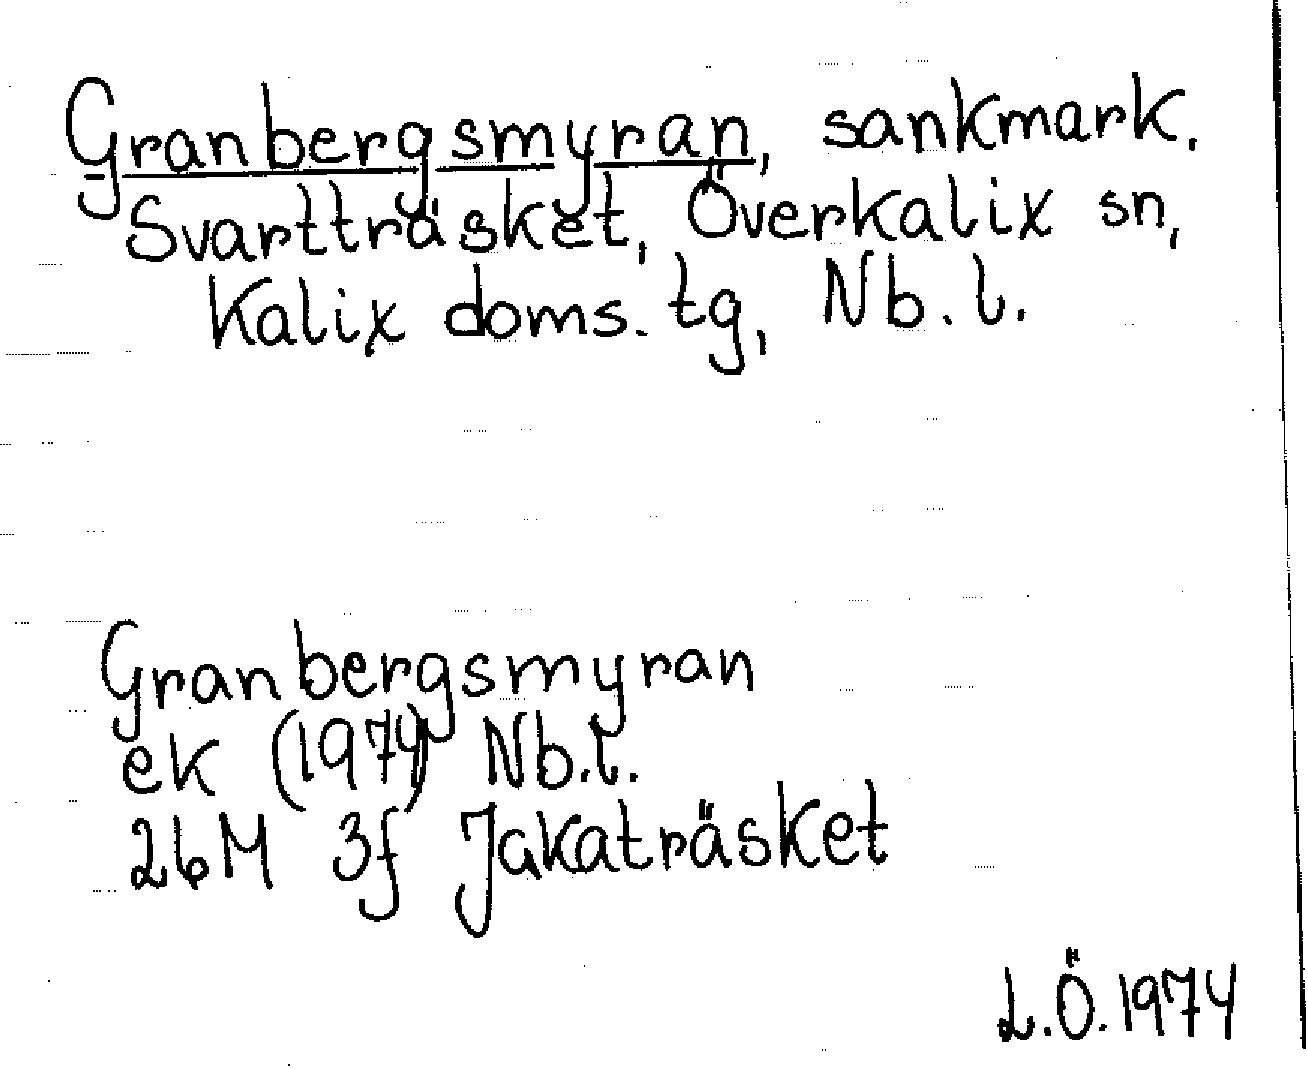 Granbergsmyran, sankmark.
Svartträsket, Överkalix sn,
Kalix doms. tg, Nb. l.
Granbergsmyran
ek (1974) Nb.l.
26M 3f Jakaträsket
L.Ö.1974